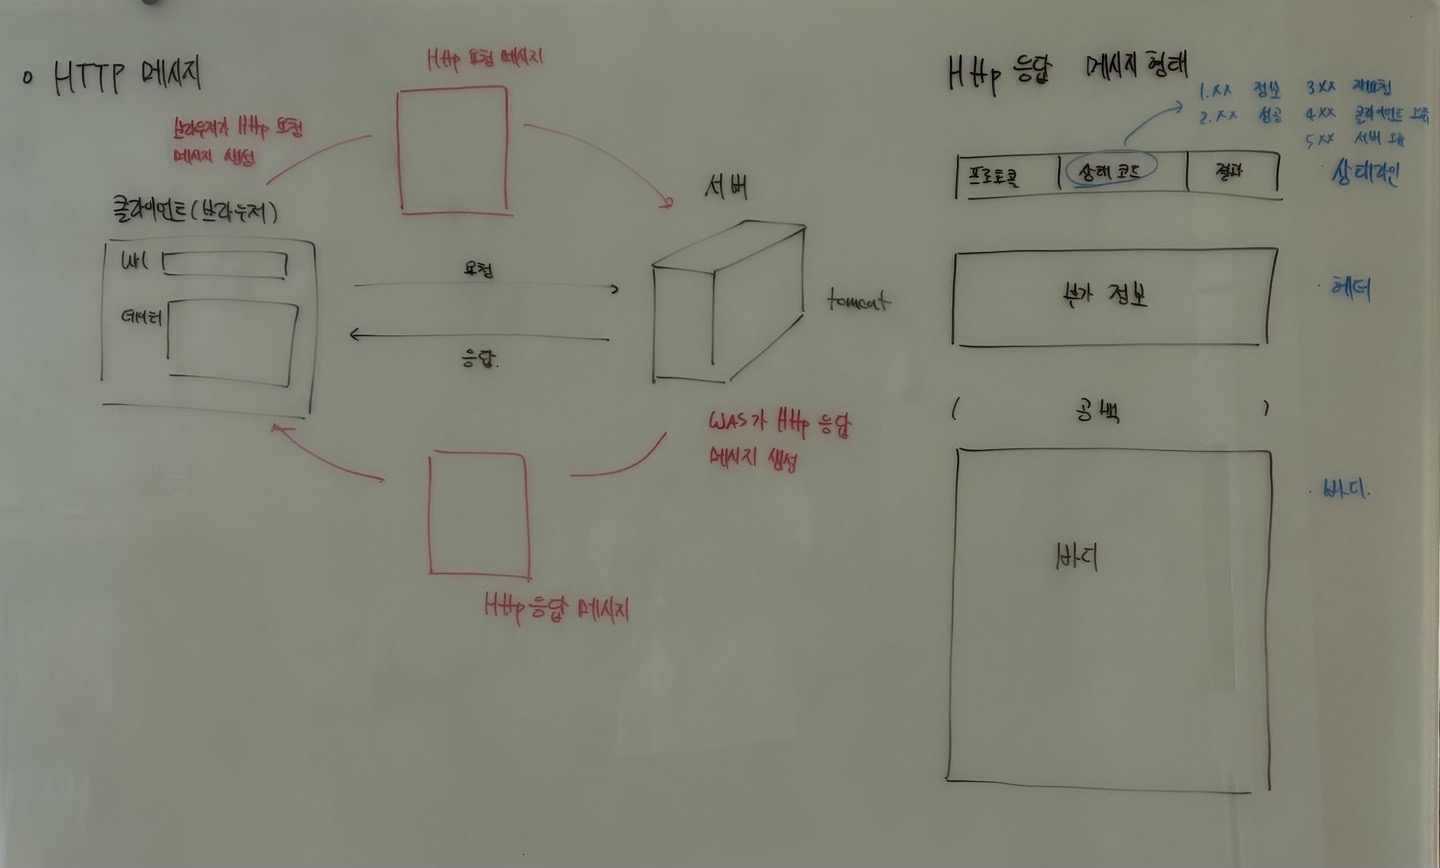 o HTTP 메시지
Http 요청 메시지
브라우저가 Http 요청
메시지 생성
클라이언트(브라우저)
Url
데이터
요청
응답.
서버
tomcat
WAS가 Http 응답
메시지 생성
Http 응답 메시지
Http 응답 메시지 형태
1.xx 정보 3xx 재요청
2.xx 성공 4.xx 클라이언트 오류
5,xx 서버 오류
프로토콜 상태 코드 결과 · 상태라인
부가 정보 · 헤더
( 공백 )
· 바디.
바디